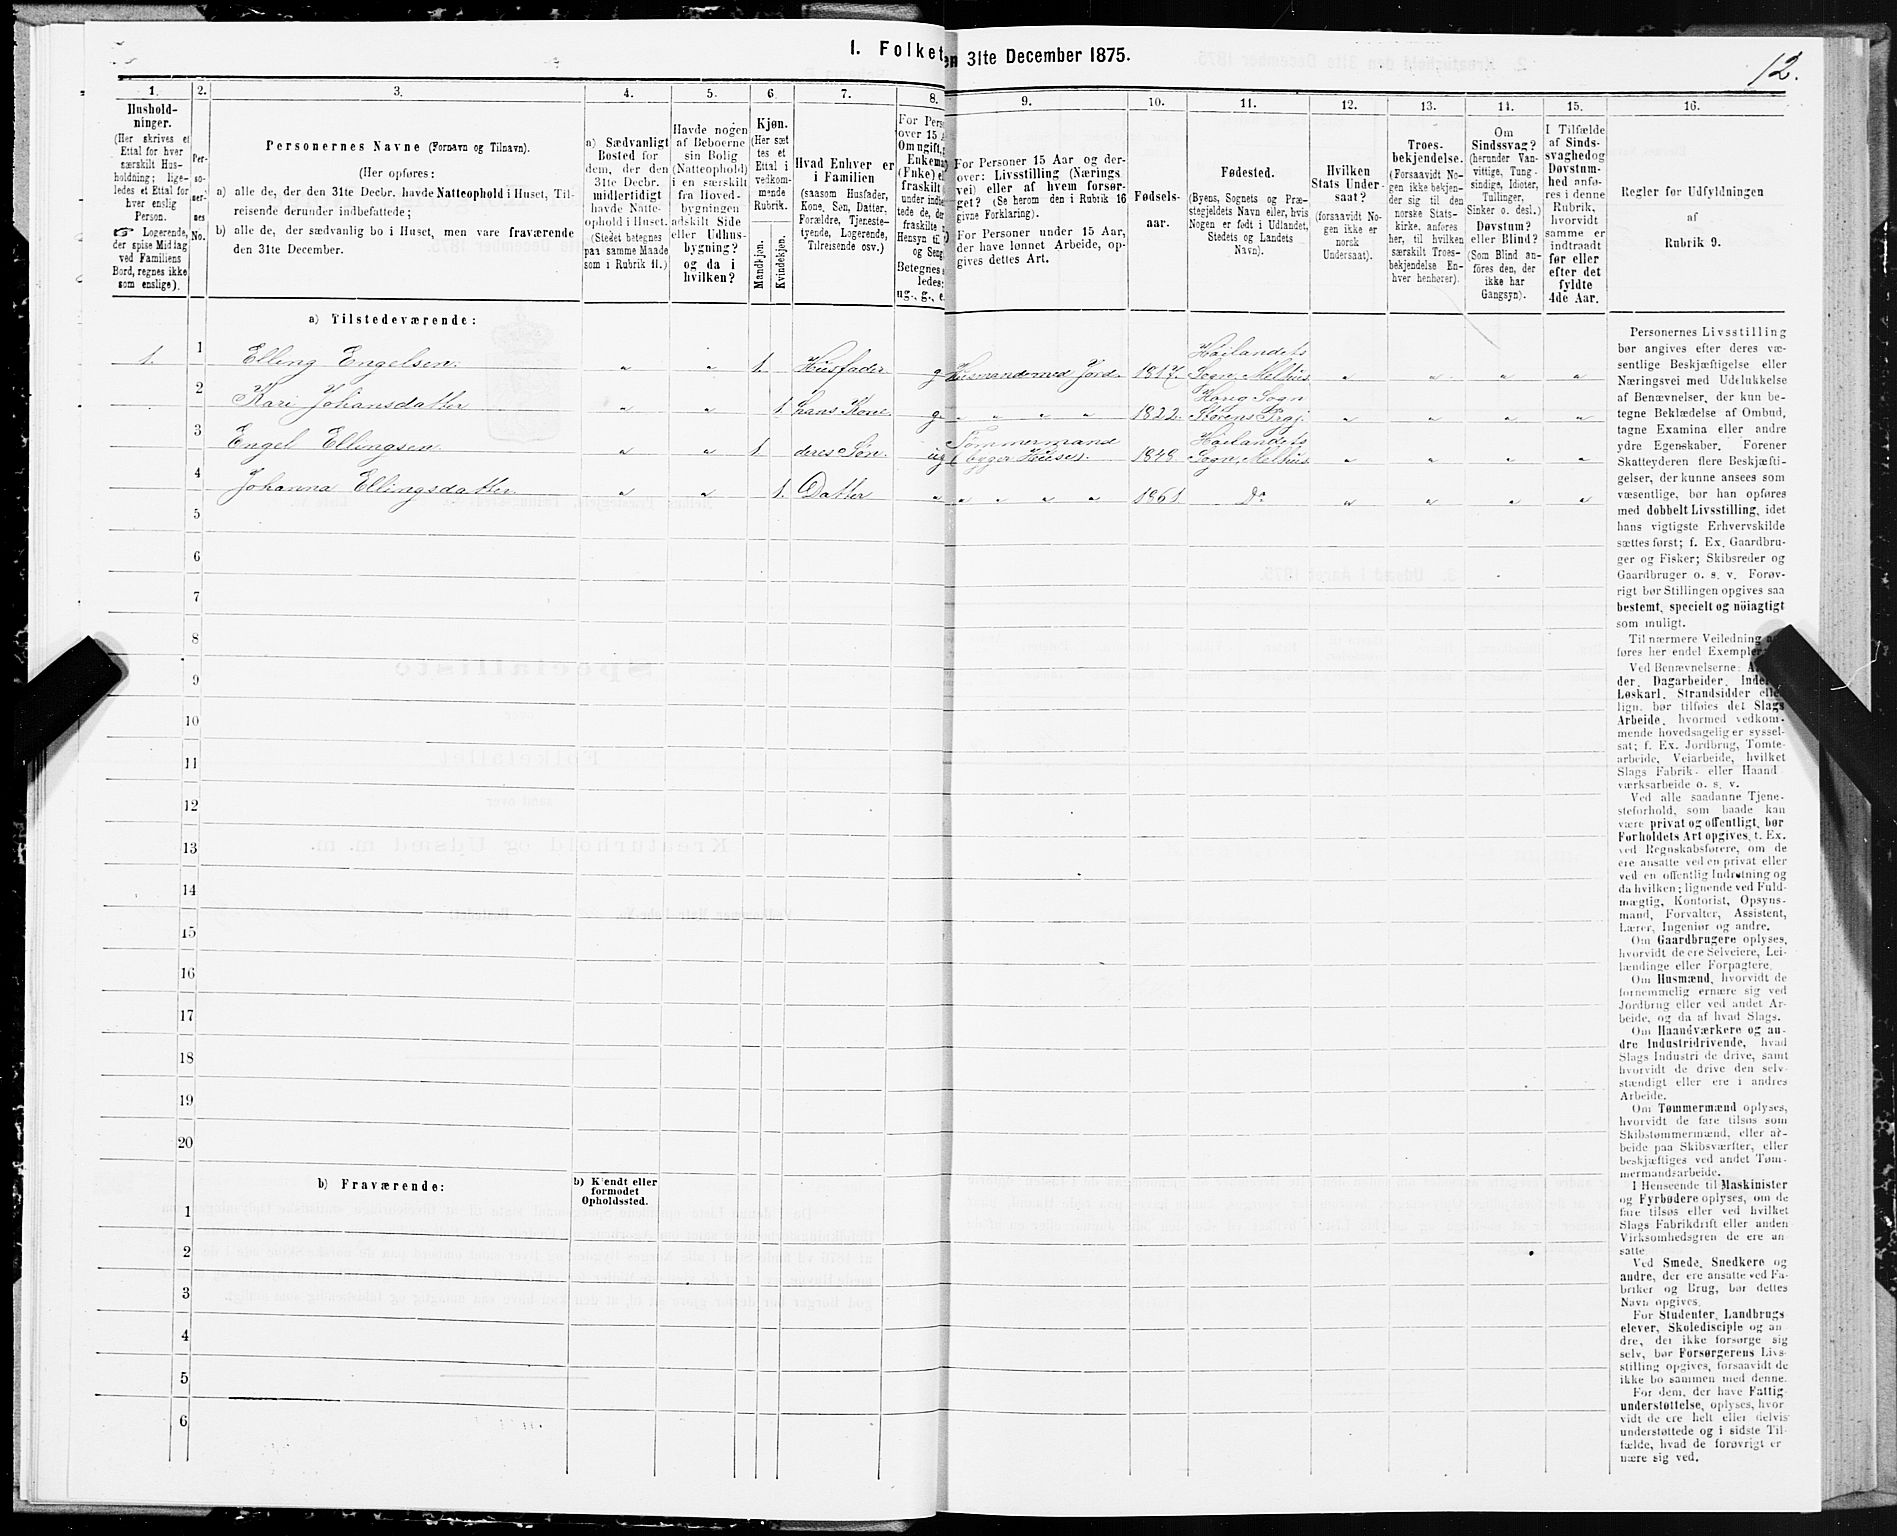 1. Folket
en 31te December 1875.
12.
1.
2.
3.
4.
5.
6
7.
8.
9.
10.
11.
12.
13.
14.
15.
16.
Hushold-
ninger.
(Her skrives et
Ettal for hver
særskilt Hus-
holdning; lige-
ledes et Ettal for
hver enslig
Person.
☞ Logerende,
der spise Middag
ved Familiens
Bord, regnes ikke
som enslige).
Per-
so-
ner-
nes
No.
Personernes Navne (Fornavn og Tilnavn).
(Her opføres:
a) alle de, der den 31te Decbr. havde Natteophold i Huset, Til-
reisende derunder indbefattede;
b) alle de, der sædvanlig bo i Huset, men vare fraværende
den 31te December.
a) Sædvanligt
Bosted for
dem, der den
31te Decbr.
midlertidigt
havde Natte-
ophold i Huset.
(Stedet betegnes
paa samme Maade
som i Rubrik 11.)
Havde nogen
af Beboerne
sin Bolig
(Natteophold)
i en særskilt
fra Hoved-
bygningen
adskilt Side
eller Udhus-
bygning?
og da i
hvilken?
Kjøn.
(Her sæt
tes et
Ettal i
vedkom-
mende
Rubrik.
Mandkjøn.
Kvindekjøn.
Hvad Enhver er
i Familien
(saasom Husfader,
Kone, Søn, Datter,
Forældre, Tjeneste-
tyende, Logerende,
Tilreisende osv.)
For Pers
over 15 A
Om ugift,
Enkema
(Fnke) e
fraskilt
under indbe
tede de, de
fraskilte
Hensyn til
og Seng
Betegnes
ledes:
ug., g., e.
For Personer 15 Aar og der-
over: Livsstilling (Nærings
vei) eller af hvem forsør-
get? (Se herom den i Rubrik 16
givne Forklaring).
For Personer under 15 Aar,
der have lønnet Arbeide, op-
gives dettes Art.
Fødsels-
aar.
Fødested.
(Byens, Sognets og Præ-
stegjeldets Navn eller, hvis
Nogen er født i Udlandet,
Stedets og Landets
Navn).
Hvilken
Stats Under-
saat?
(forsaavidt No-
gen ikke er
norsk
Undersaat).
Troes-
bekjendelse.
(Forsaavidt No-
gen ikke bekjen-
der sig til den
norske Stats-
kirke, anføres
her, til hvilken
særskilt Troes-
bekjendelse En-
hver henhører).
Om
Sindssvag?
(herunder Van-
vittige, Tung-
sindige, Idioter,
Tullinger,
Sinker o. desl.)
Døvstum?
eller Blind?
(Som Blind an-
føres den, der
ikke har
Gangsyn).
I Tilfælde
af Sinds-
svaghedog
Døvstum-
hed anfø-
res i denne
Rubrik,
hvorvidt
samme er
indtraadt
før eller
efter det
fyldte
4de Aar.
Regler for Udfyldningen
af
Rubrik 9.
a) Tilstedeværende:
1. 1 Elling Engelsen. „ „ 1. Husfader g Husmand med Jord. 1817. Høilandets Sogn, Melhus „ „ „ „
2 Kari Johansdatter „ „ 1. hans Kone g. „ „ „ „ 1822. Houg Sogn Størens Præj. „ „ „ „
3 Engel Ellingsen. „ „ 1. deres Søn ug Tømmermand (bygger Huse). 1848. Høilandets Sogn, Melhus „ „ „ „
4 Johanna Ellingsdatter. „ „ 1. Datter „ „ „ „ „ 1861. Do „ „ „ „
5
6
7
8
9
10
11
12
13
14
15
16
17
18
19
20
b) Fraværende:
b) Kjendt eller
formodet
Opholdssted.
1
2
3
4
5
6
Personernes Livsstilling
bør angives efter deres væ-
sentlige Beskjæftigelse eller
Næringsvei med Udelukkelse
af Benævnelser, der kun be-
tegne Beklædelse af Ombud,
tagne Examina eller andre
ydre Egenskaber. Forener
Skatteyderen flere Beskjæfti-
gelser, der kunne ansees som
væsentlige, bør han opføres
med dobbelt Livsstilling, idet
hans vigtigste Erhvervskilde
sættes først; f. Ex. Gaardbru-
ger og Fisker; Skibsreder og
Gaardbruger o. s. v. Forøv-
rigt bør Stillingen opgives saa
bestemt, specielt og nöiagtigt
som muligt.
Til nærmere Veiledning
føres her endel Exempler
Ved Benævnelserne: A
der, Dagarbeider, Inder
Løskarl, Strandsidder eller
lign. bør tilføies det Slags
Arbeide, hvormed vedkom-
mende hovedsagelig er syssel-
sat; f. Ex. Jordbrug, Tomte-
arbeide, Veiarbeide, hvilket
Slags Fabrik- eller Haand
værksarbeide o. s. v.
Ved alle saadanne Tjene-
steforhold, som baade kan
være privat og offentligt, bør
Forholdets Art opgives, t. Ex.
ved Regnskabsførere, om de
ere ansatte ved en privat eller
ved en offentlig Indretning og
da hvilken; lignende ved Fuld-
mægtig, Kontorist, Opsyns-
mand, Forvalter, Assistent,
Lærer, Ingeniør og andre.
Om Gaardbrugere oplyses,
hvorvidt de ere Selveiere, Lei-
lændinge eller Forpagtere.
Om Husmænd, hvorvidt de
fornemmelig ernære sig ved
Jordbrug eller ved andet Ar-
beide, og da af hvad Slags.
Om Haandværkere og an-
dre Industridrivende, hvad
Slags Industri de drive, samt
hvorvidt de drive den selv-
stændigt eller ere i andres
Arbeide.
Om Tømmermænd oplyses,
hvorvidt de fare tilsøs som
Skibstømmermænd, eller ar-
beide paa Skibsværfter, eller
beskjæftiges ved andet Tøm-
mermandsarbeide.
I Henseende til Maskinister
og Fyrbødere oplyses, om de
fare tilsøs eller ved hvilket
Slags Fabrikdrift eller anden
Virksomhedsgren de ere an-
satte
Ved Smede, Snedkere og
andre, der ere ansatte ved Fa-
briker og Brug, bør dettes
Navn opgives.
For Studenter, Landbrugs
elever, Skoledisciple og an-
dre, det ikke forsørge sig
selv, bør Forsørgerens Livs-
stilling opgives, forsaavidt de
ikke bo sammen med denne.
For dem, der have Fattig-
understøttelse, oplyses, hvor
vidt de ere helt eller delvis
understøttede og i sidste Til-
fælde, hvad de forøvrigt er
nære sig ved.